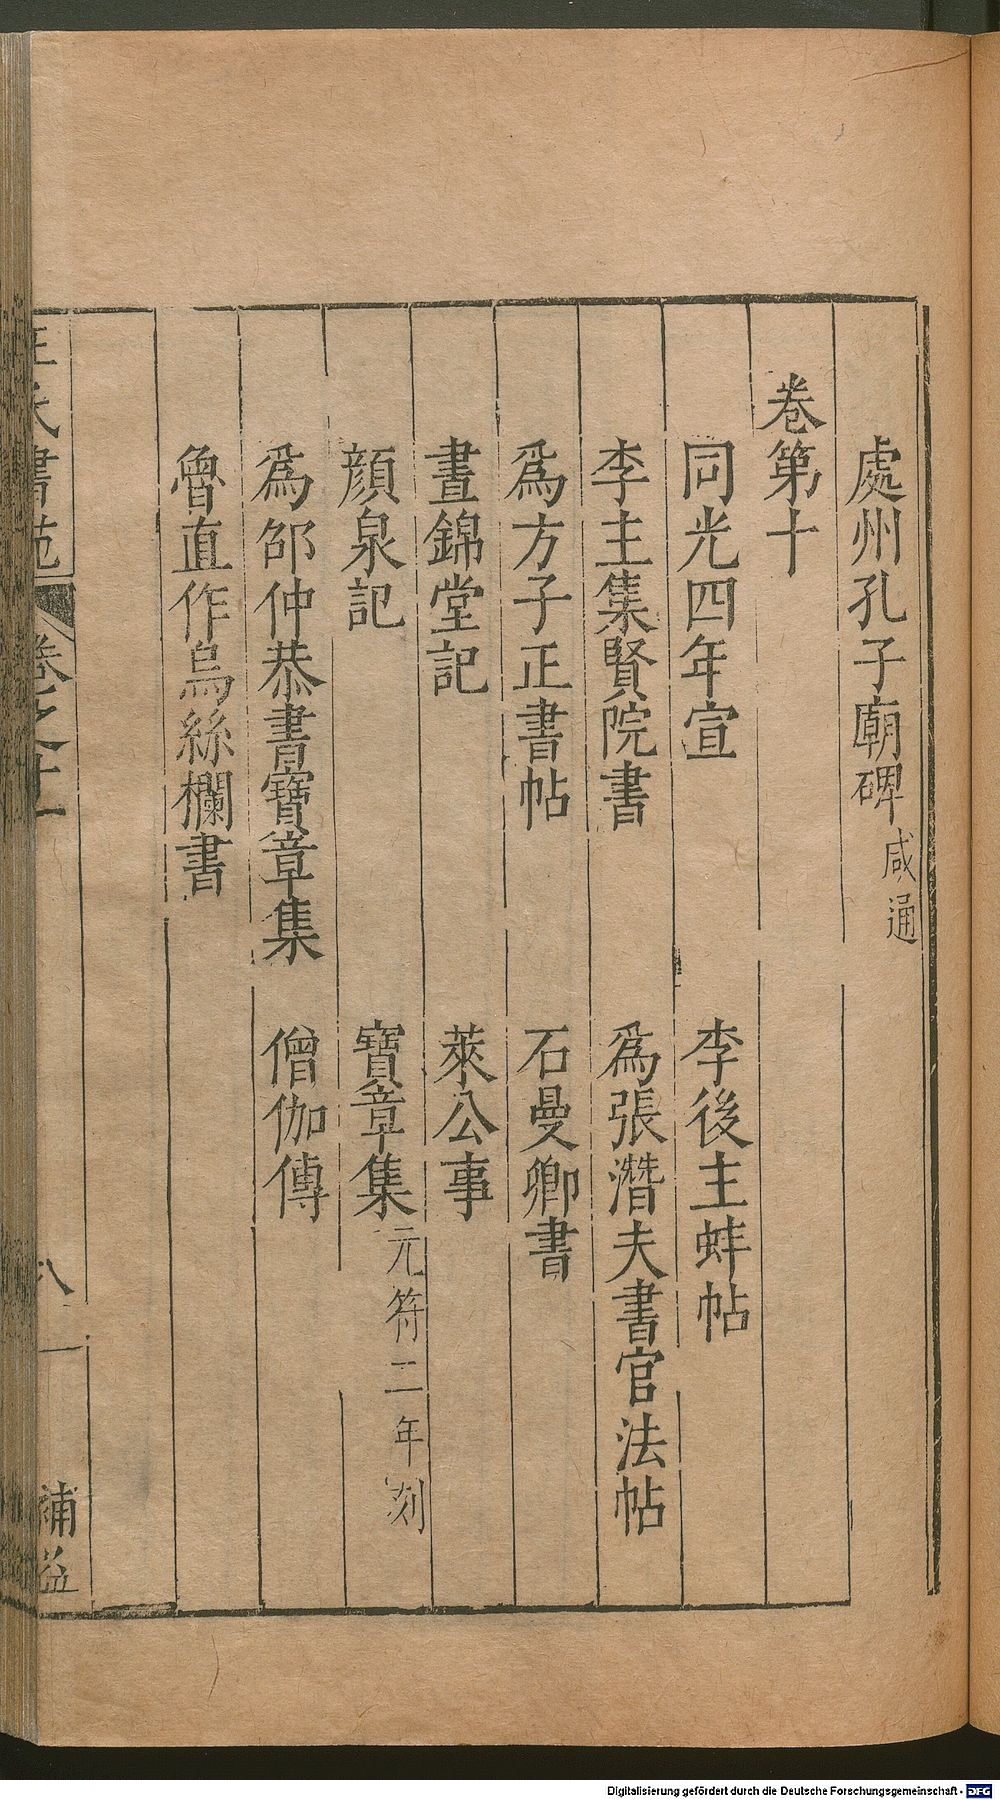 處州孔子廟碑咸通
卷第十
同光四年宣 李後主蚌帖
李主集賢院書 爲張潛夫書官法帖
爲方子正書帖 石曼卿書
晝錦堂記 萊公事
顔泉記 寶章集元符二年刻
爲邵仲恭書寶章集 僧伽傳
魯直作烏絲欄書
王氏書苑 卷之十 八 補益
Digitalisierung gefördert durch die Deutsche Forschungsgemeinschaft - DFG